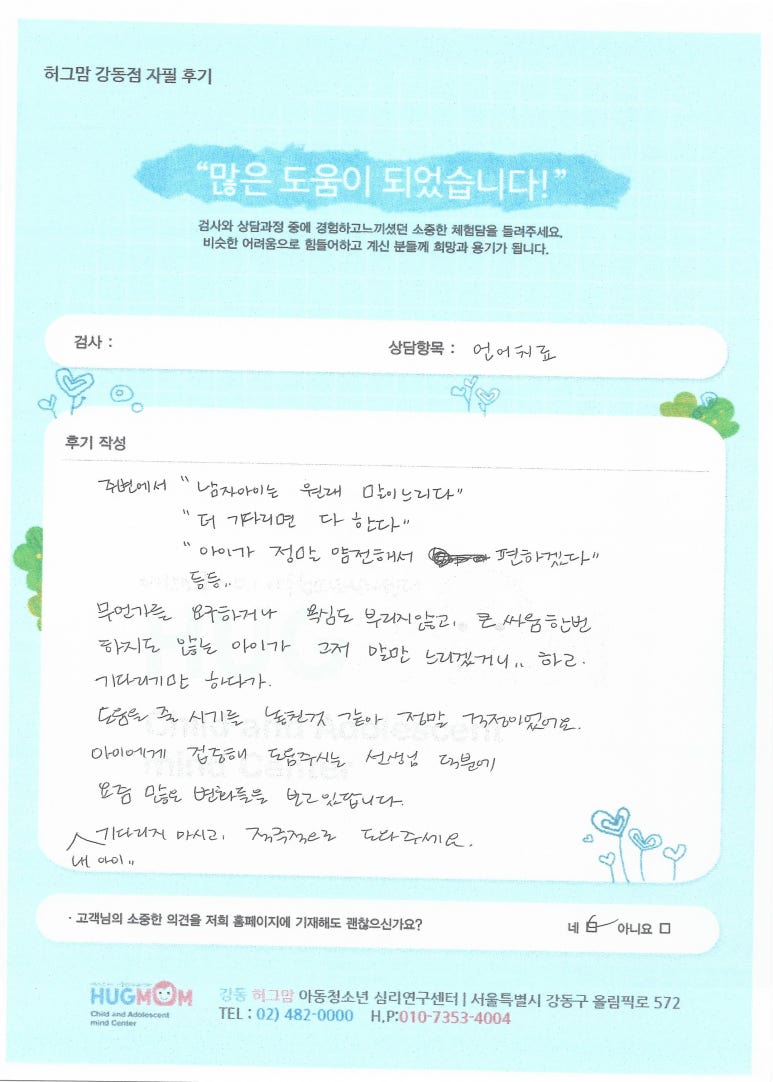 허그맘 강동점 자필 후기
“많은 도움이 되었습니다!”
검사와 상담과정 중에 경험하고느끼셨던 소중한 체험담을 들려주세요.
비슷한 어려움으로 힘들어하고 계신 분들께 희망과 용기가 됩니다.
검사 : 상담항목 : 언어치료
후기 작성
주변에서 “남자아이는 원래 말이느리다”
“더 기다리면 다 한다”
“아이가 정말 얌전해서 편하겠다”
등등..
무언가를 요구하거나 욕심도 부리지않고, 큰 싸움한번
하지도 않는 아이가 그저 말만 느리겠거니.. 하고.
기다리기만 하다가.
도움을 줄 시기를 놓친것 같아 정말 걱정이었어요.
아이에게 집중해 도움주시는 선생님 덕분에
요즘 많은 변화들을 보고있답니다.
기다리지 마시고, 적극적으로 도와주세요.
내 아이..
· 고객님의 소중한 의견을 저희 홈페이지에 기재해도 괜찮으신가요? 네 아니요
HUGMOM
Child and Adolescent
mind Center
강동 허그맘 아동청소년 심리연구센터 | 서울특별시 강동구 올림픽로 572
TEL : 02) 482-0000 H,P:010-7353-4004